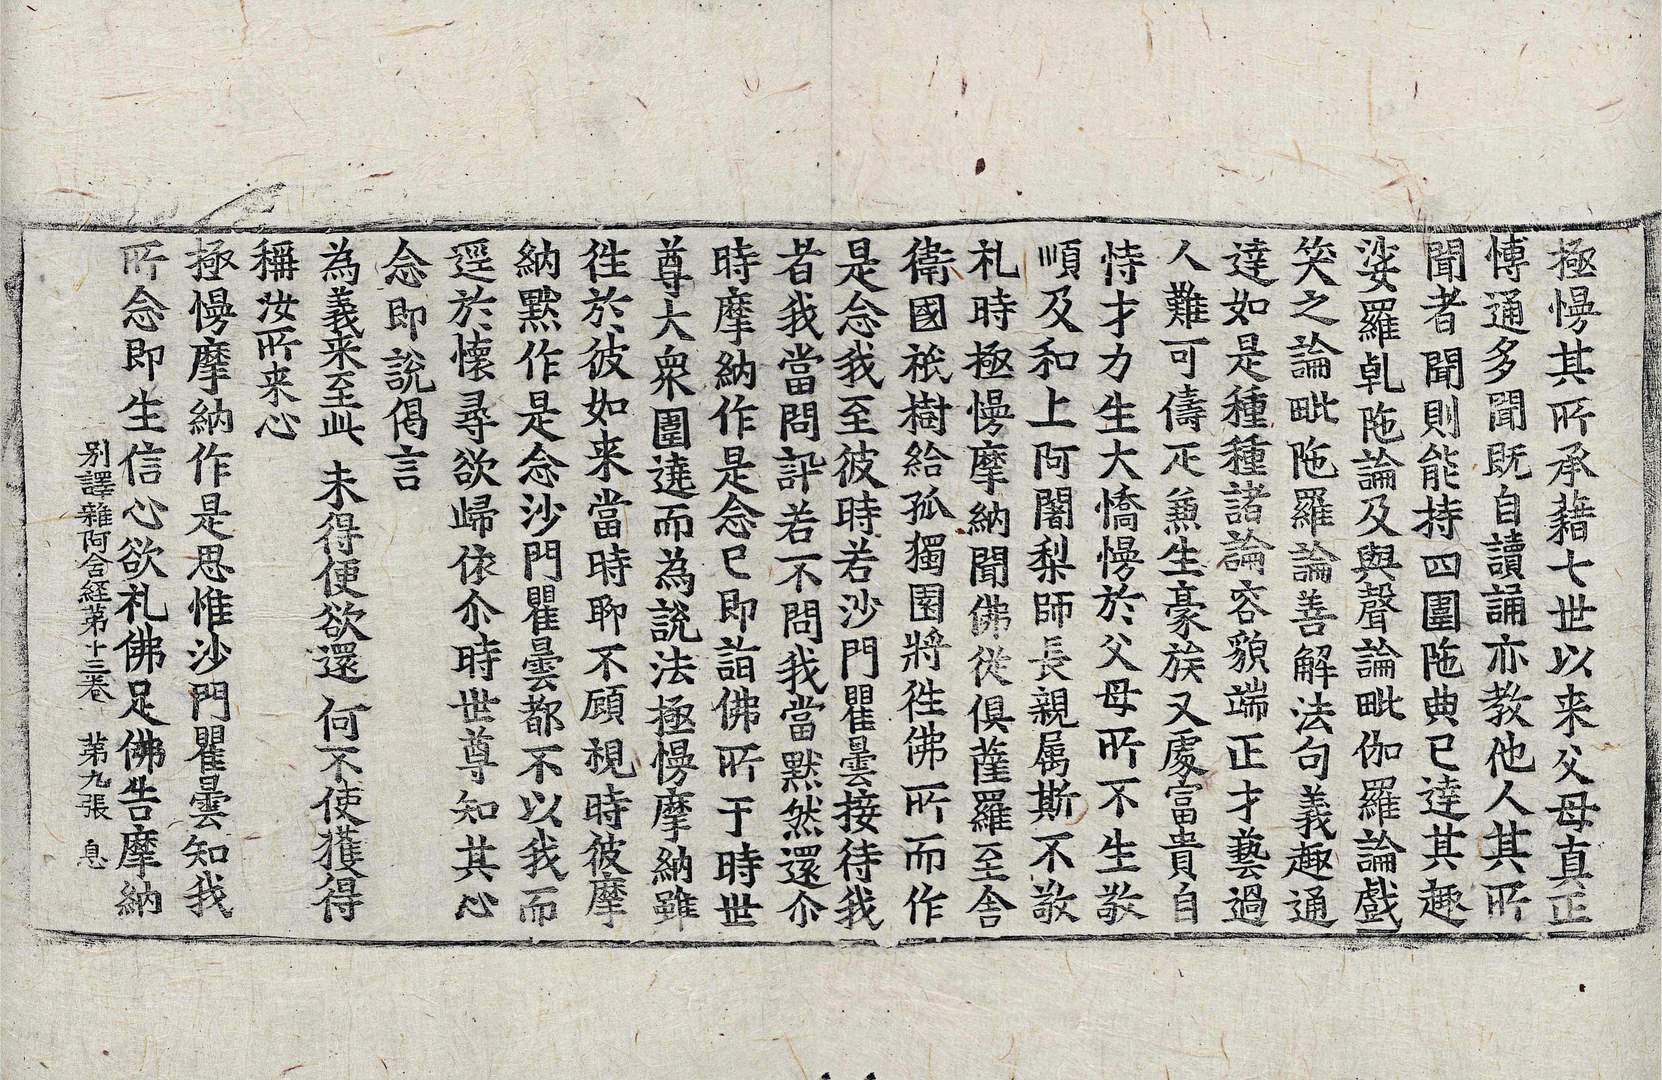 極慢其所承藉七世以来父母真正
愽通多聞既自讀誦亦教他人其所
聞者聞則能持四圍陁典已達其趣
娑羅乹陁論及與聲論毗伽羅論戲
笑之論毗陁羅論善解法句義趣通
達如是種種諸論容貌端正才藝過
人難可儔疋兼生豪族又處富貴自
恃才力生大憍慢於父母所不生敬
順及和上阿闍梨師長親属斯不敬
礼時極慢摩納聞佛從俱薩羅至舍
衛國祇樹給孤獨園將徃佛所而作
是念我至彼時若沙門瞿曇接待我
者我當問訊若不問我當默然還尒
時摩納作是念已即詣佛所于時世
尊大衆圍遶而為說法極慢摩納雖
徃於彼如来當時聊不顧視時彼摩
納默作是念沙門瞿曇都不以我而
逕於懷尋欲歸依尒時世尊知其心
念即說偈言
為義来至此 未得便欲還 何不使獲得
稱汝所来心
極慢摩納作是思惟沙門瞿曇知我
所念即生信心欲礼佛足佛告摩納
別譯雜阿含経苐十三卷 苐九張 息